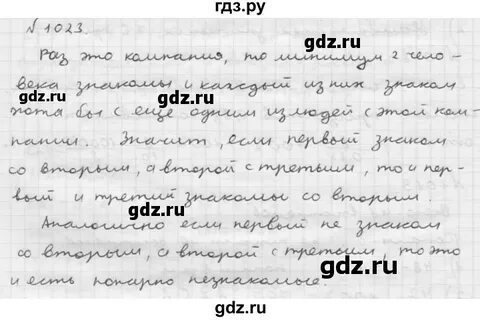 гдз.ру
№ 1023.
Раз это компания, то минимум 2 чело-
века знакомы и каждый из них знаком
хотя бы с еще одним из людей с этой ком-
пании. Значит, если первый знаком
со вторым, а второй с третьим, то и пер-
вый и третий знакомы со вторым.
Аналогично если первый не знаком
со вторым, а второй с третьим, то это
и есть попарно незнакомые.
gdz.ru
gdz.ru
gdz.ru
gdz.ru
gdz.ru
gdz.ru
gdz.ru